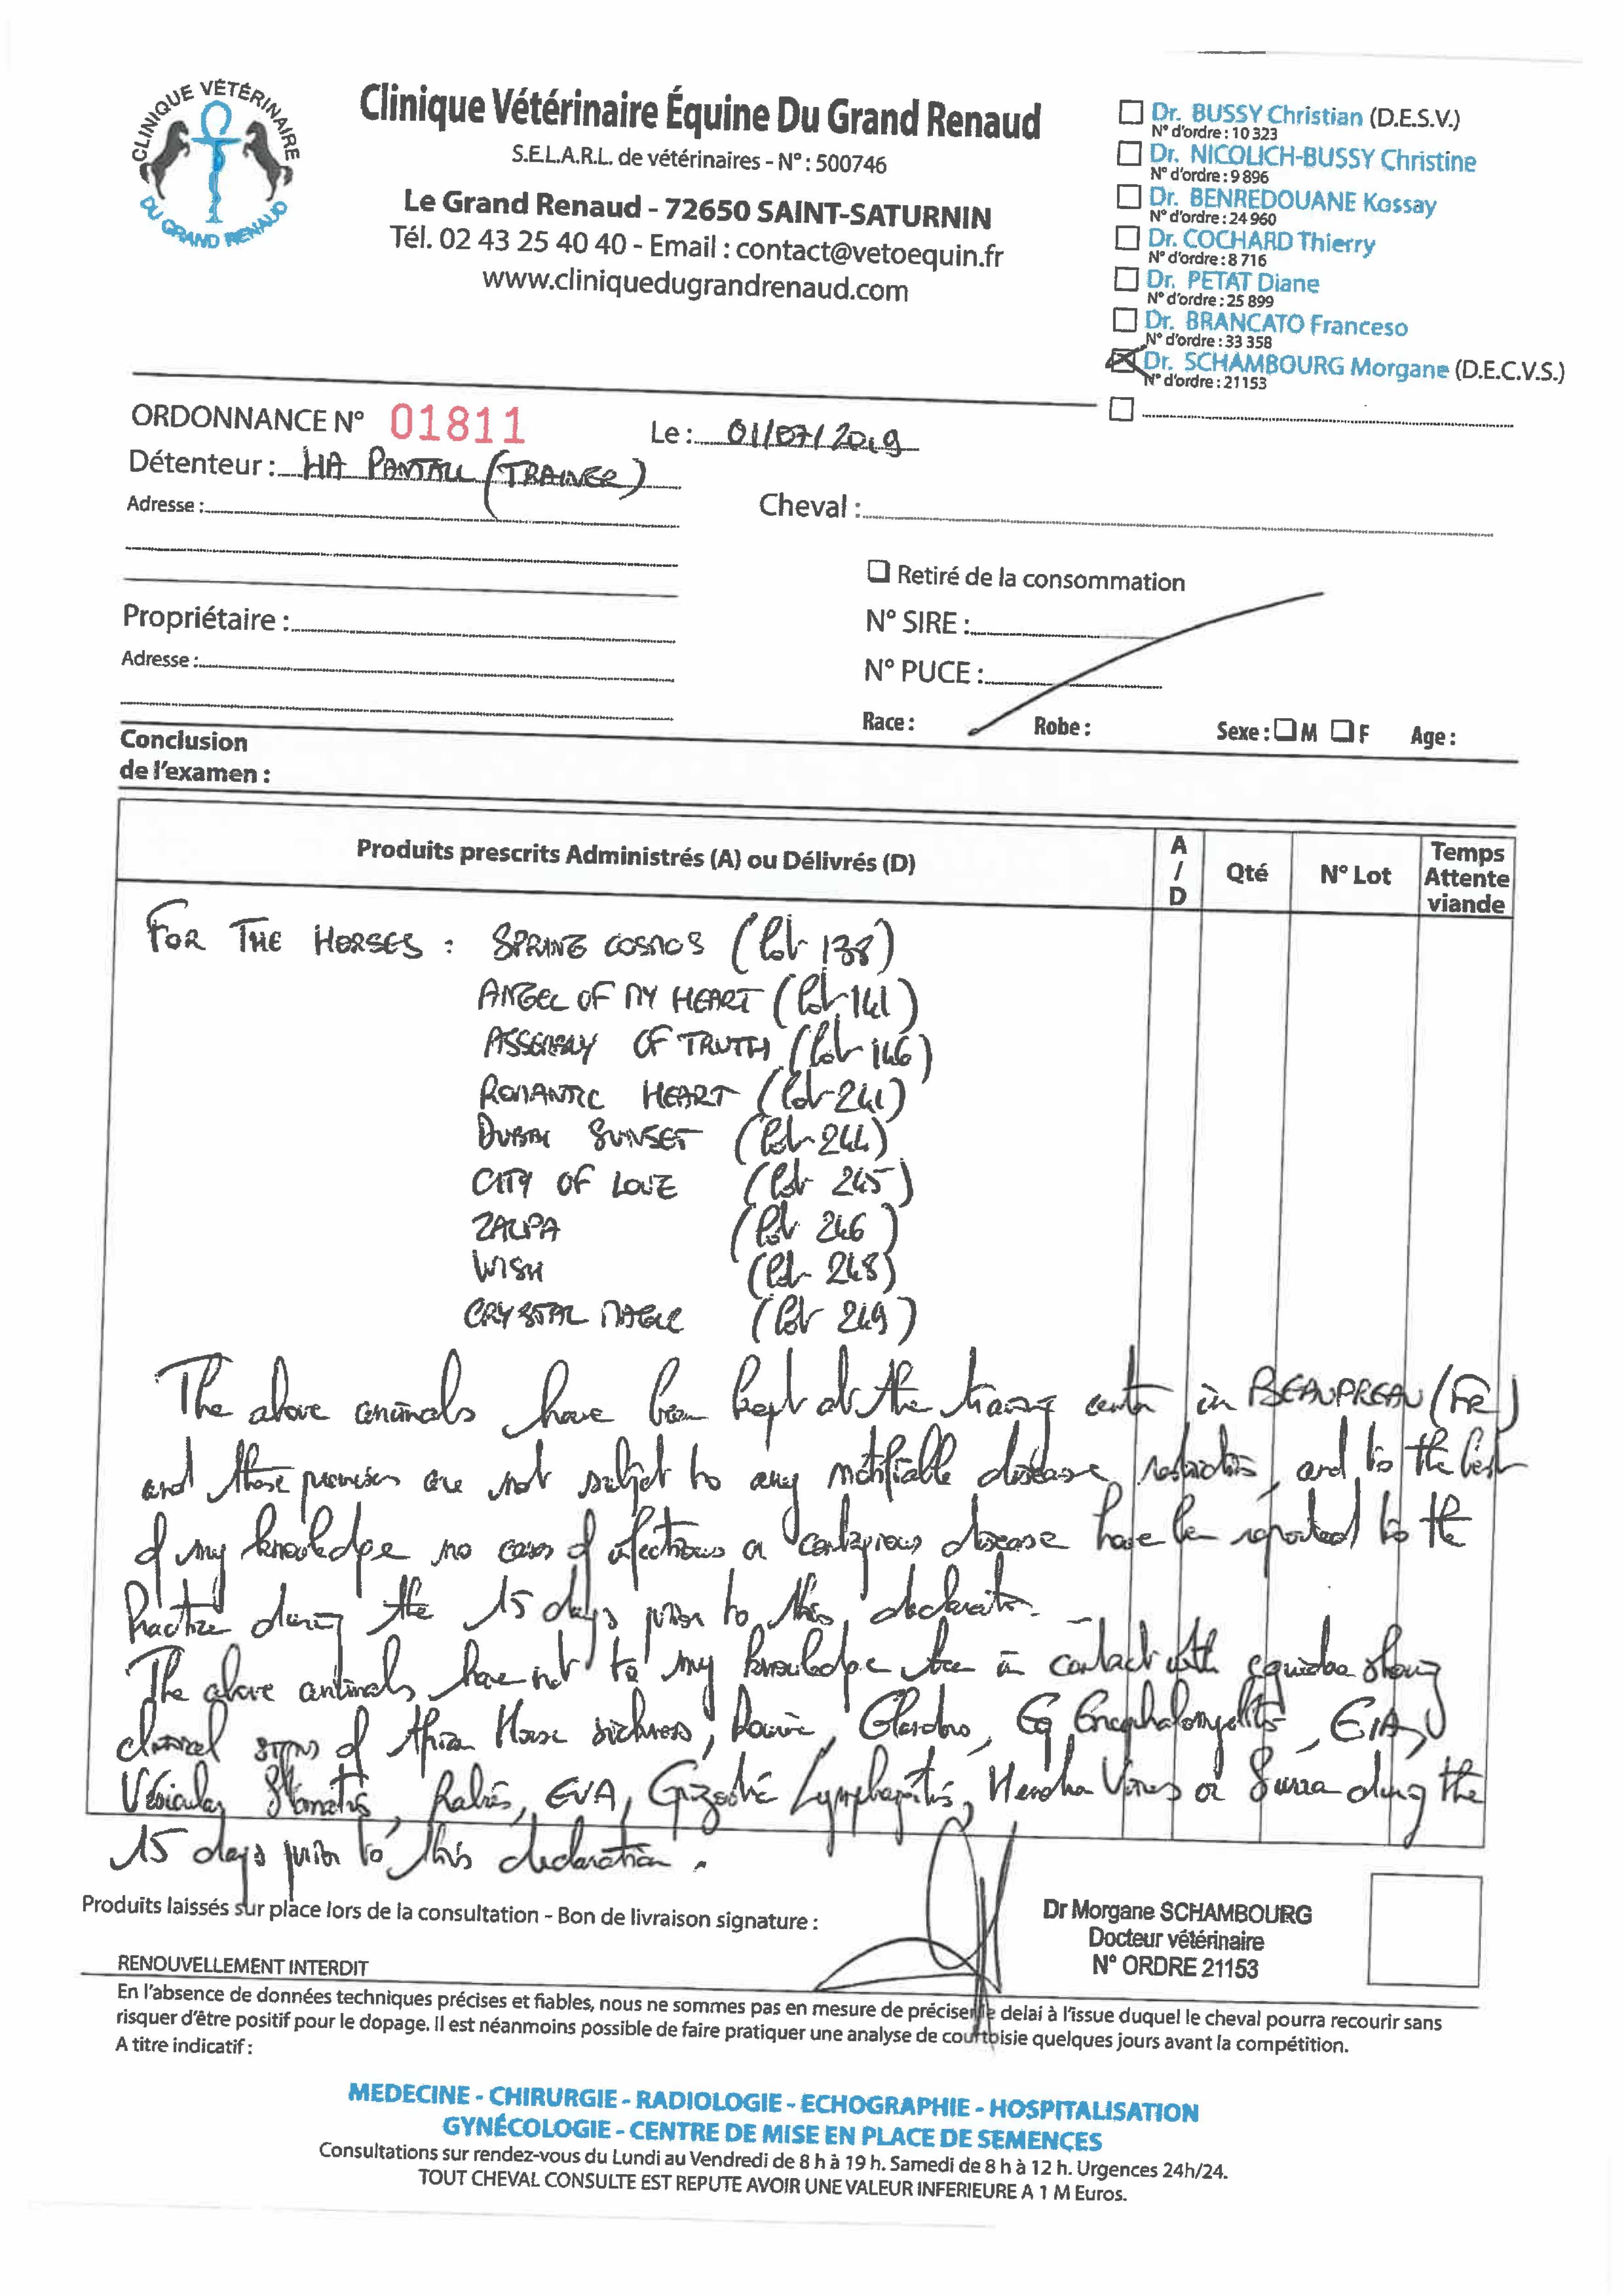 CLINIQUE VÉTÉRINAIRE
DU GRAND RENAUD
Clinique Vétérinaire Équine Du Grand Renaud
S.E.L.A.R.L. de vétérinaires - N° : 500746
Le Grand Renaud - 72650 SAINT-SATURNIN
Tél. 02 43 25 40 40 - Email : contact@vetoequin.fr
www.cliniquedugrandrenaud.com
Dr. BUSSY Christian (D.E.S.V.)
N° d'ordre : 10 323
Dr. NICOLICH-BUSSY Christine
N° d'ordre : 9 896
Dr. BENREDOUANE Kossay
N° d'ordre : 24 960
Dr. COCHARD Thierry
N° d'ordre : 8 716
Dr. PETAT Diane
N° d'ordre : 25 899
Dr. BRANCATO Franceso
N° d'ordre : 33 358
Dr. SCHAMBOURG Morgane (D.E.C.V.S.)
N° d'ordre : 21153
ORDONNANCE N° 01811 Le : 01/07/2019
Détenteur : HA PANTALL (TRAINER)
Adresse :
Cheval :
Retiré de la consommation
Propriétaire :
N° SIRE :
Adresse :
N° PUCE :
Race : Robe : Sexe : M F Age :
Conclusion
de l'examen :
Produits prescrits Administrés (A) ou Délivrés (D) A / D Qté N° Lot Temps Attente viande
FOR THE HORSES : SPRING COSMOS (lot 138)
ANGEL OF MY HEART (lot 141)
ASSEMBLY OF TRUTH (lot 146)
ROMANTIC HEART (lot 241)
DUBAI SUNSET (lot 244)
CITY OF LOVE (lot 245)
ZALPA (lot 246)
WISH (lot 248)
CRYSTAL MAGIC (lot 249)
The above animals have been kept at the training center in BEAUPREAU (FR)
and these premises are not subject to any notifiable disease restriction, and to the best
of my knowledge no cases of infectious or contagious disease have been reported to the
Practice during the 15 days prior to this declaration.
The above animals have not to my knowledge been in contact with equidae showing
clinical signs of African Horse sickness, Dourine, Glanders, Eq Encephalomyelitis, EIA,
Vesicular Stomatitis, Rabies, EVA, Epizootic Lymphangitis, Hendra Virus or Surra during the
15 days prior to this declaration.
Produits laissés sur place lors de la consultation - Bon de livraison signature :
Dr Morgane SCHAMBOURG
Docteur vétérinaire
N° ORDRE 21153
RENOUVELLEMENT INTERDIT
En l'absence de données techniques précises et fiables, nous ne sommes pas en mesure de préciser le delai à l'issue duquel le cheval pourra recourir sans
risquer d'être positif pour le dopage. Il est néanmoins possible de faire pratiquer une analyse de courtoisie quelques jours avant la compétition.
A titre indicatif :
MEDECINE - CHIRURGIE - RADIOLOGIE - ECHOGRAPHIE - HOSPITALISATION
GYNÉCOLOGIE - CENTRE DE MISE EN PLACE DE SEMENCES
Consultations sur rendez-vous du Lundi au Vendredi de 8 h à 19 h. Samedi de 8 h à 12 h. Urgences 24h/24.
TOUT CHEVAL CONSULTE EST REPUTE AVOIR UNE VALEUR INFERIEURE A 1 M Euros.